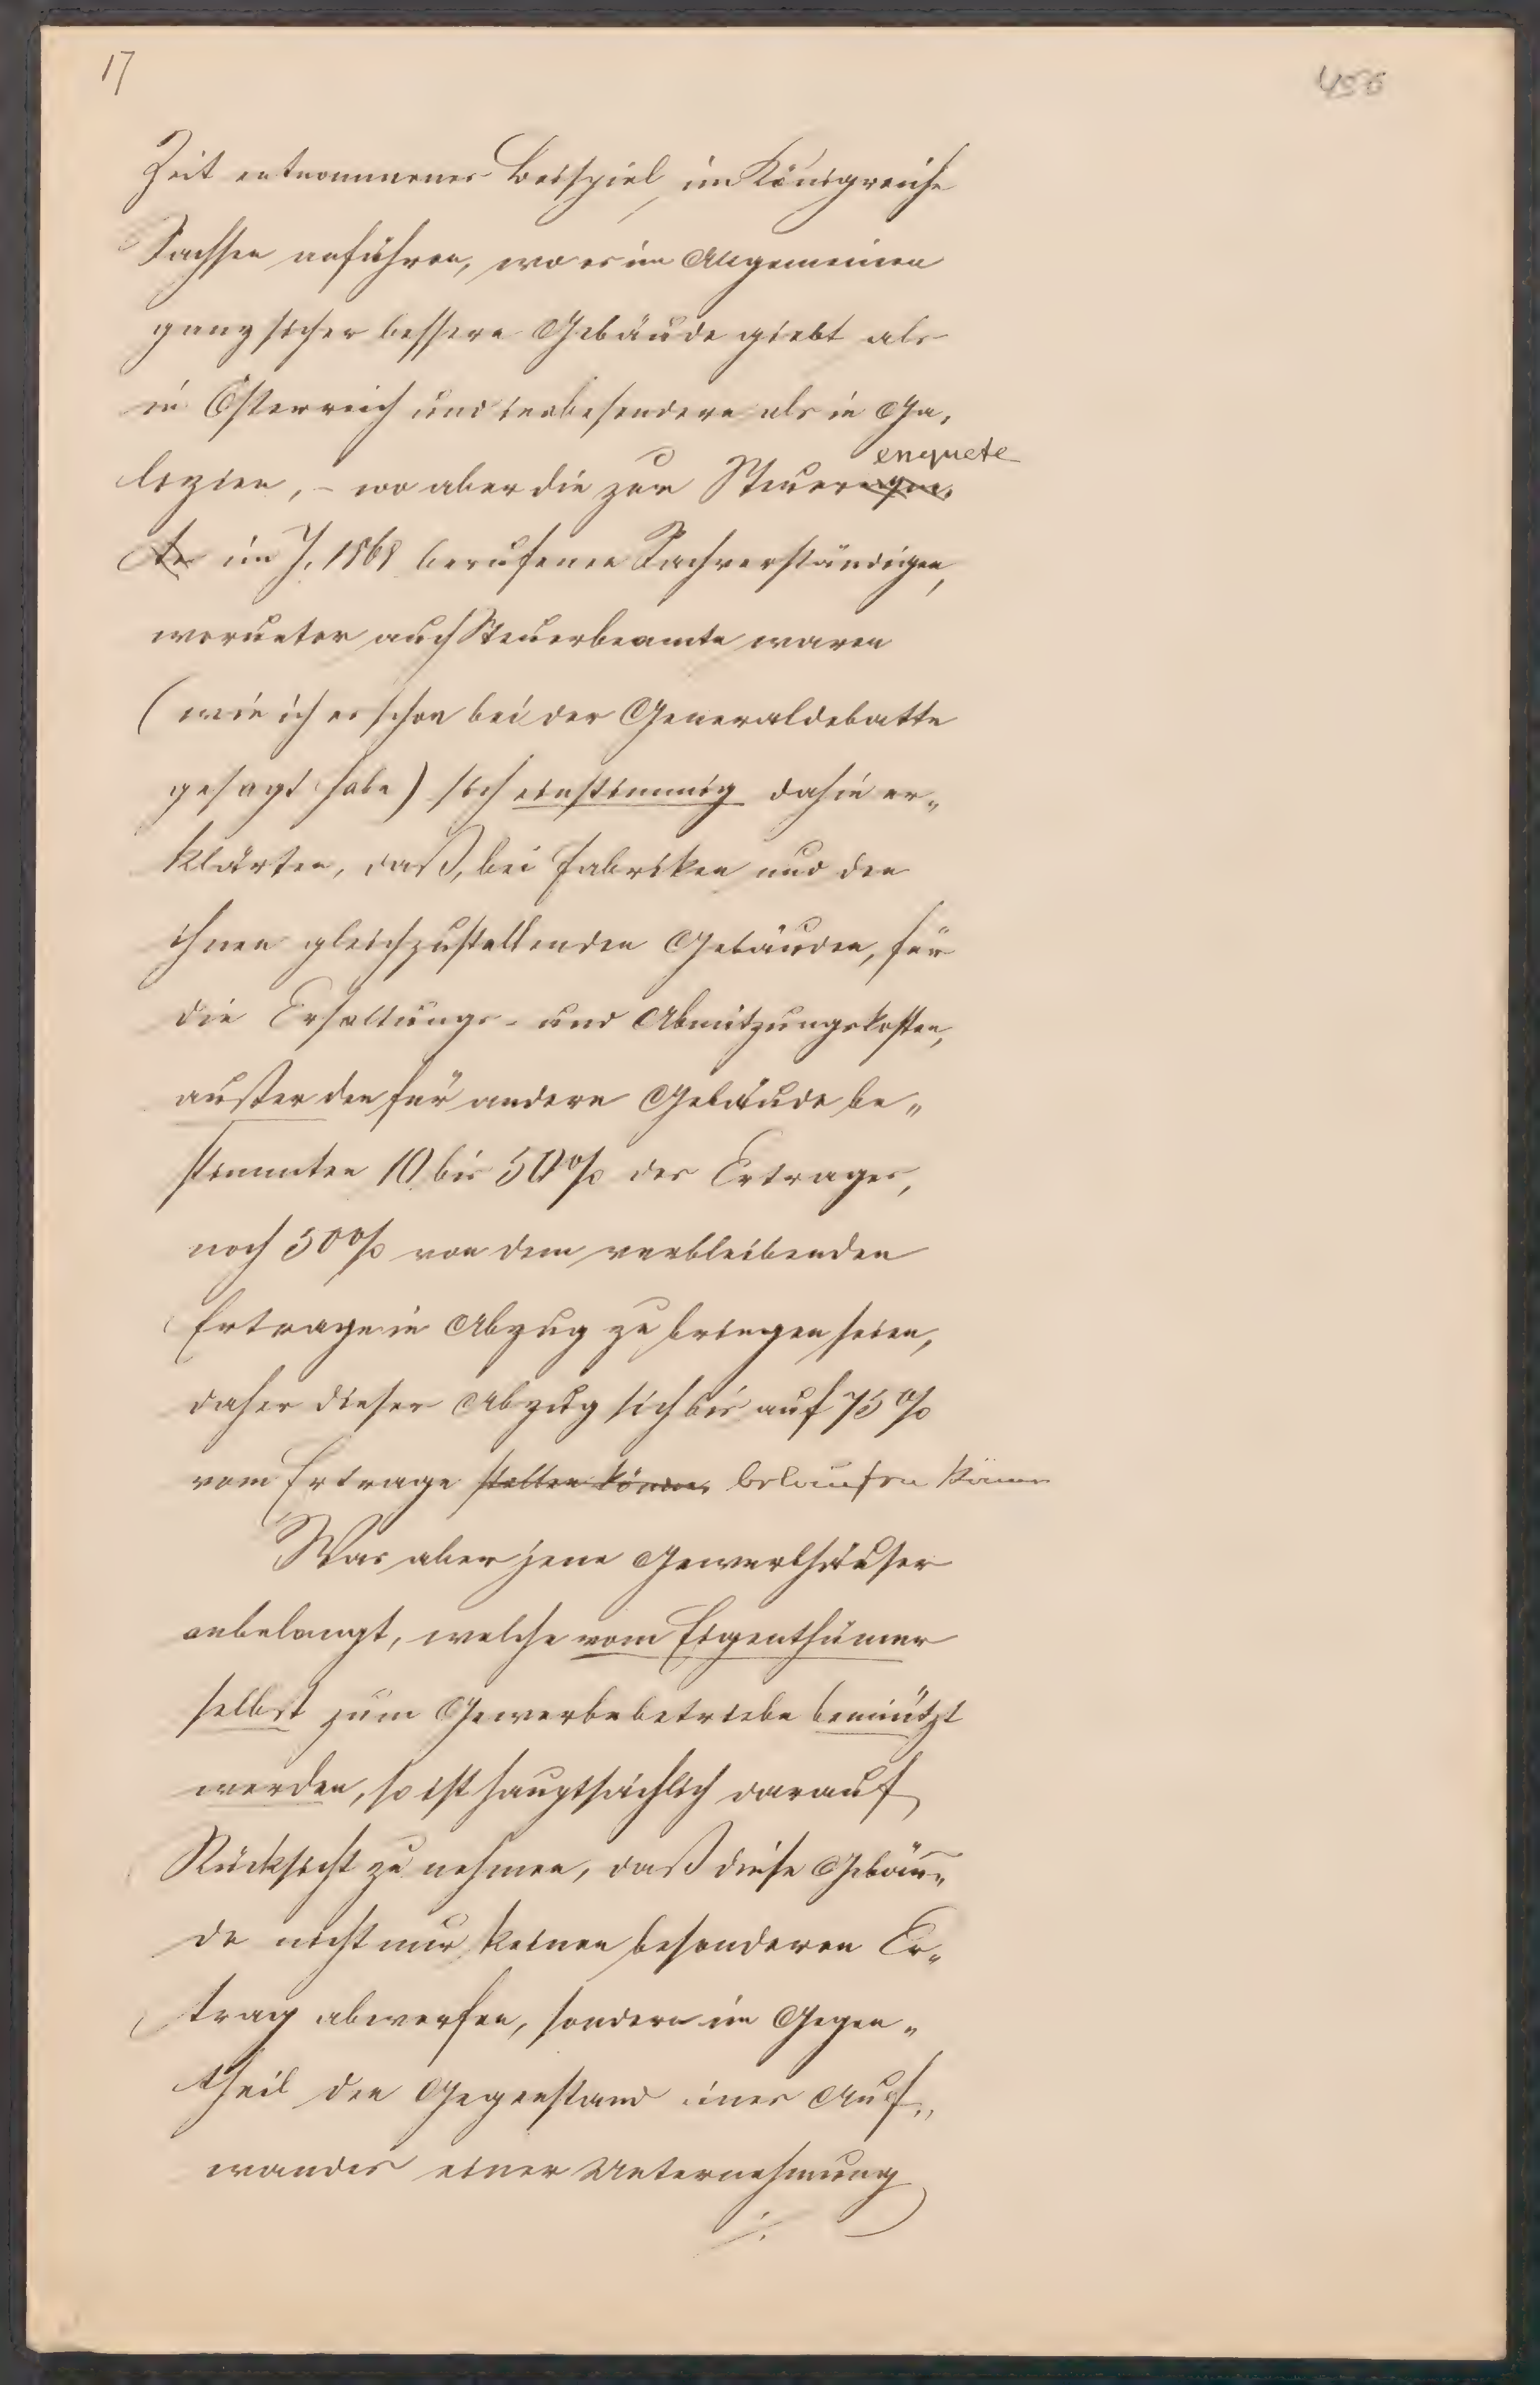 17
456
Zeit entnommenes Beispiel, im Königreiche
Sachsen anführen, wo es im Allgemeinen
ganz sicher bessere Gebäude giebt als
in Österreich und insbesondere als in Ga,
enquete
lizien, – wo aber die zur Steuer
im J. 1868 berufenen Sachverständigen,
worunter auch Steuerbeamte waren
(wie ich es schon bei der Generaldebatte
gesagt habe) sich einstimmig dahin er„
klärten, daß, bei Fabriken und den
ihnen gleichzustellenden Gebäuden, für
die Erhaltungs- und Abnützungskosten,
außer den für andere Gebäude be„
stimmten 10 bis 50% des Ertrages,
noch 50% von dem verbleibenden
Ertrage in Abzug zu bringen seien,
daher dieser Abzug sich bis auf 75%
vom Ertrage stellen könne, belaufen könne
Was aber jene Gewerbhäuser
anbelangt, welche vom Eigenthümer
selbst zum Gewerbebetriebe benützt
werden, so ist hauptsächlich darauf
Rücksicht zu nehmen, daß diese Gebäu„
de nicht nur keinen besonderen Er„
trag abwerfen, sondern im Gegen„
theil den Gegenstand eines Auf„
wandes einer Unternehmung
./.